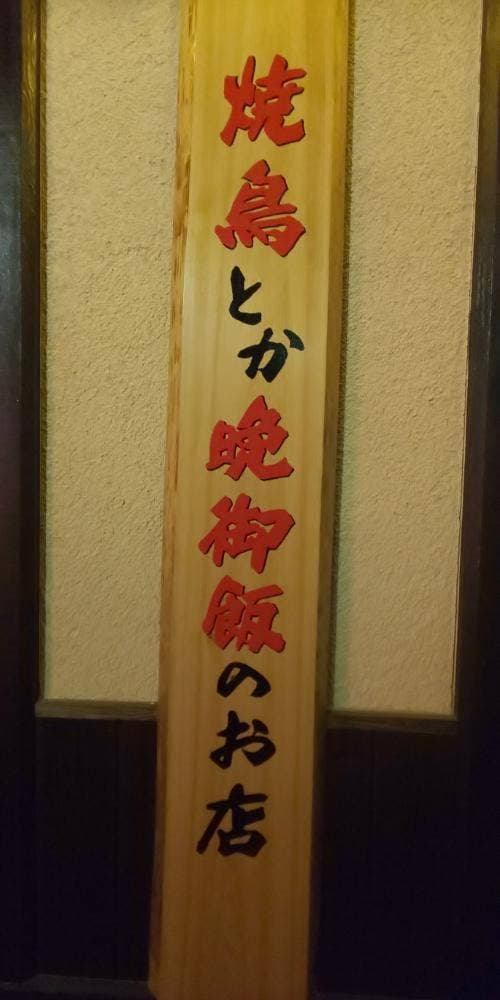 焼鳥とか晩御飯のお店